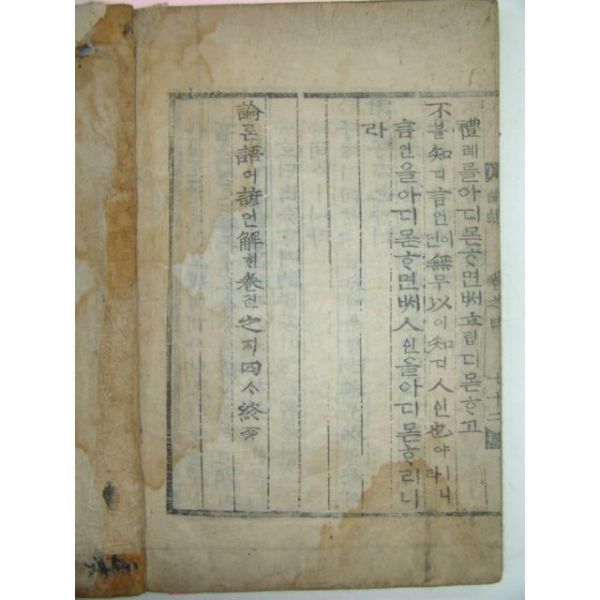 卷之四
禮례를아디몯ᄒᆞ면ᄡᅥ立립디몯ᄒᆞ고
不블知디言언이면無무以이知디人신也야ㅣ니라
言언을아디몯ᄒᆞ면ᄡᅥ人신을아디몯ᄒᆞ리니
라
論론語어諺언解ᄒᆡ卷권之지四ᄉᆞ終죵